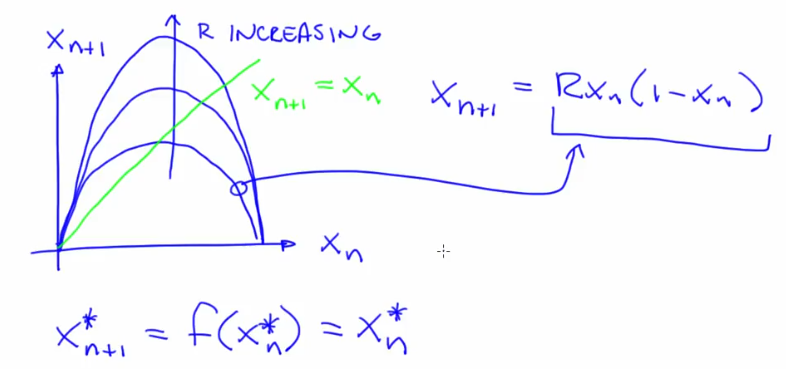 X_{n+1}
R INCREASING
X_{n+1} = X_n
X_{n+1} = RX_n(1-X_n)
X_n
X^*_{n+1} = f(X^*_n) = X^*_n